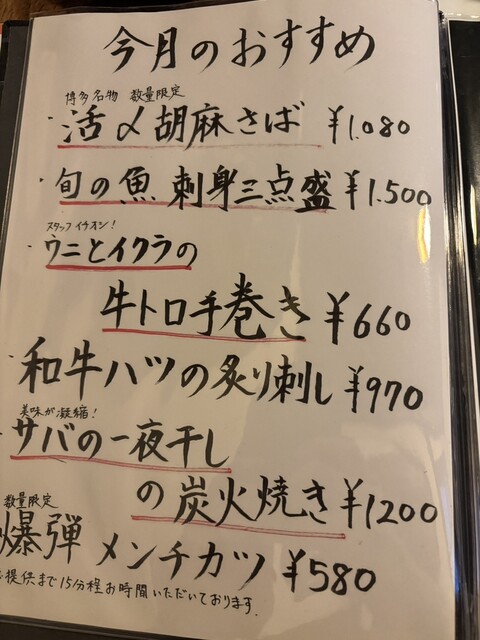 今月のおすすめ
博多名物 数量限定
活〆胡麻さば ¥1.080
旬の魚 刺身三点盛 ¥1.500
スタッフイチオシ!
ウニとイクラの
牛トロ手巻き ¥660
和牛ハツの炙り刺し ¥970
美味が凝縮!
サバの一夜干し
の炭火焼き ¥1200
数量限定
爆弾メンチカツ ¥580
提供まで15分程お時間いただいております.